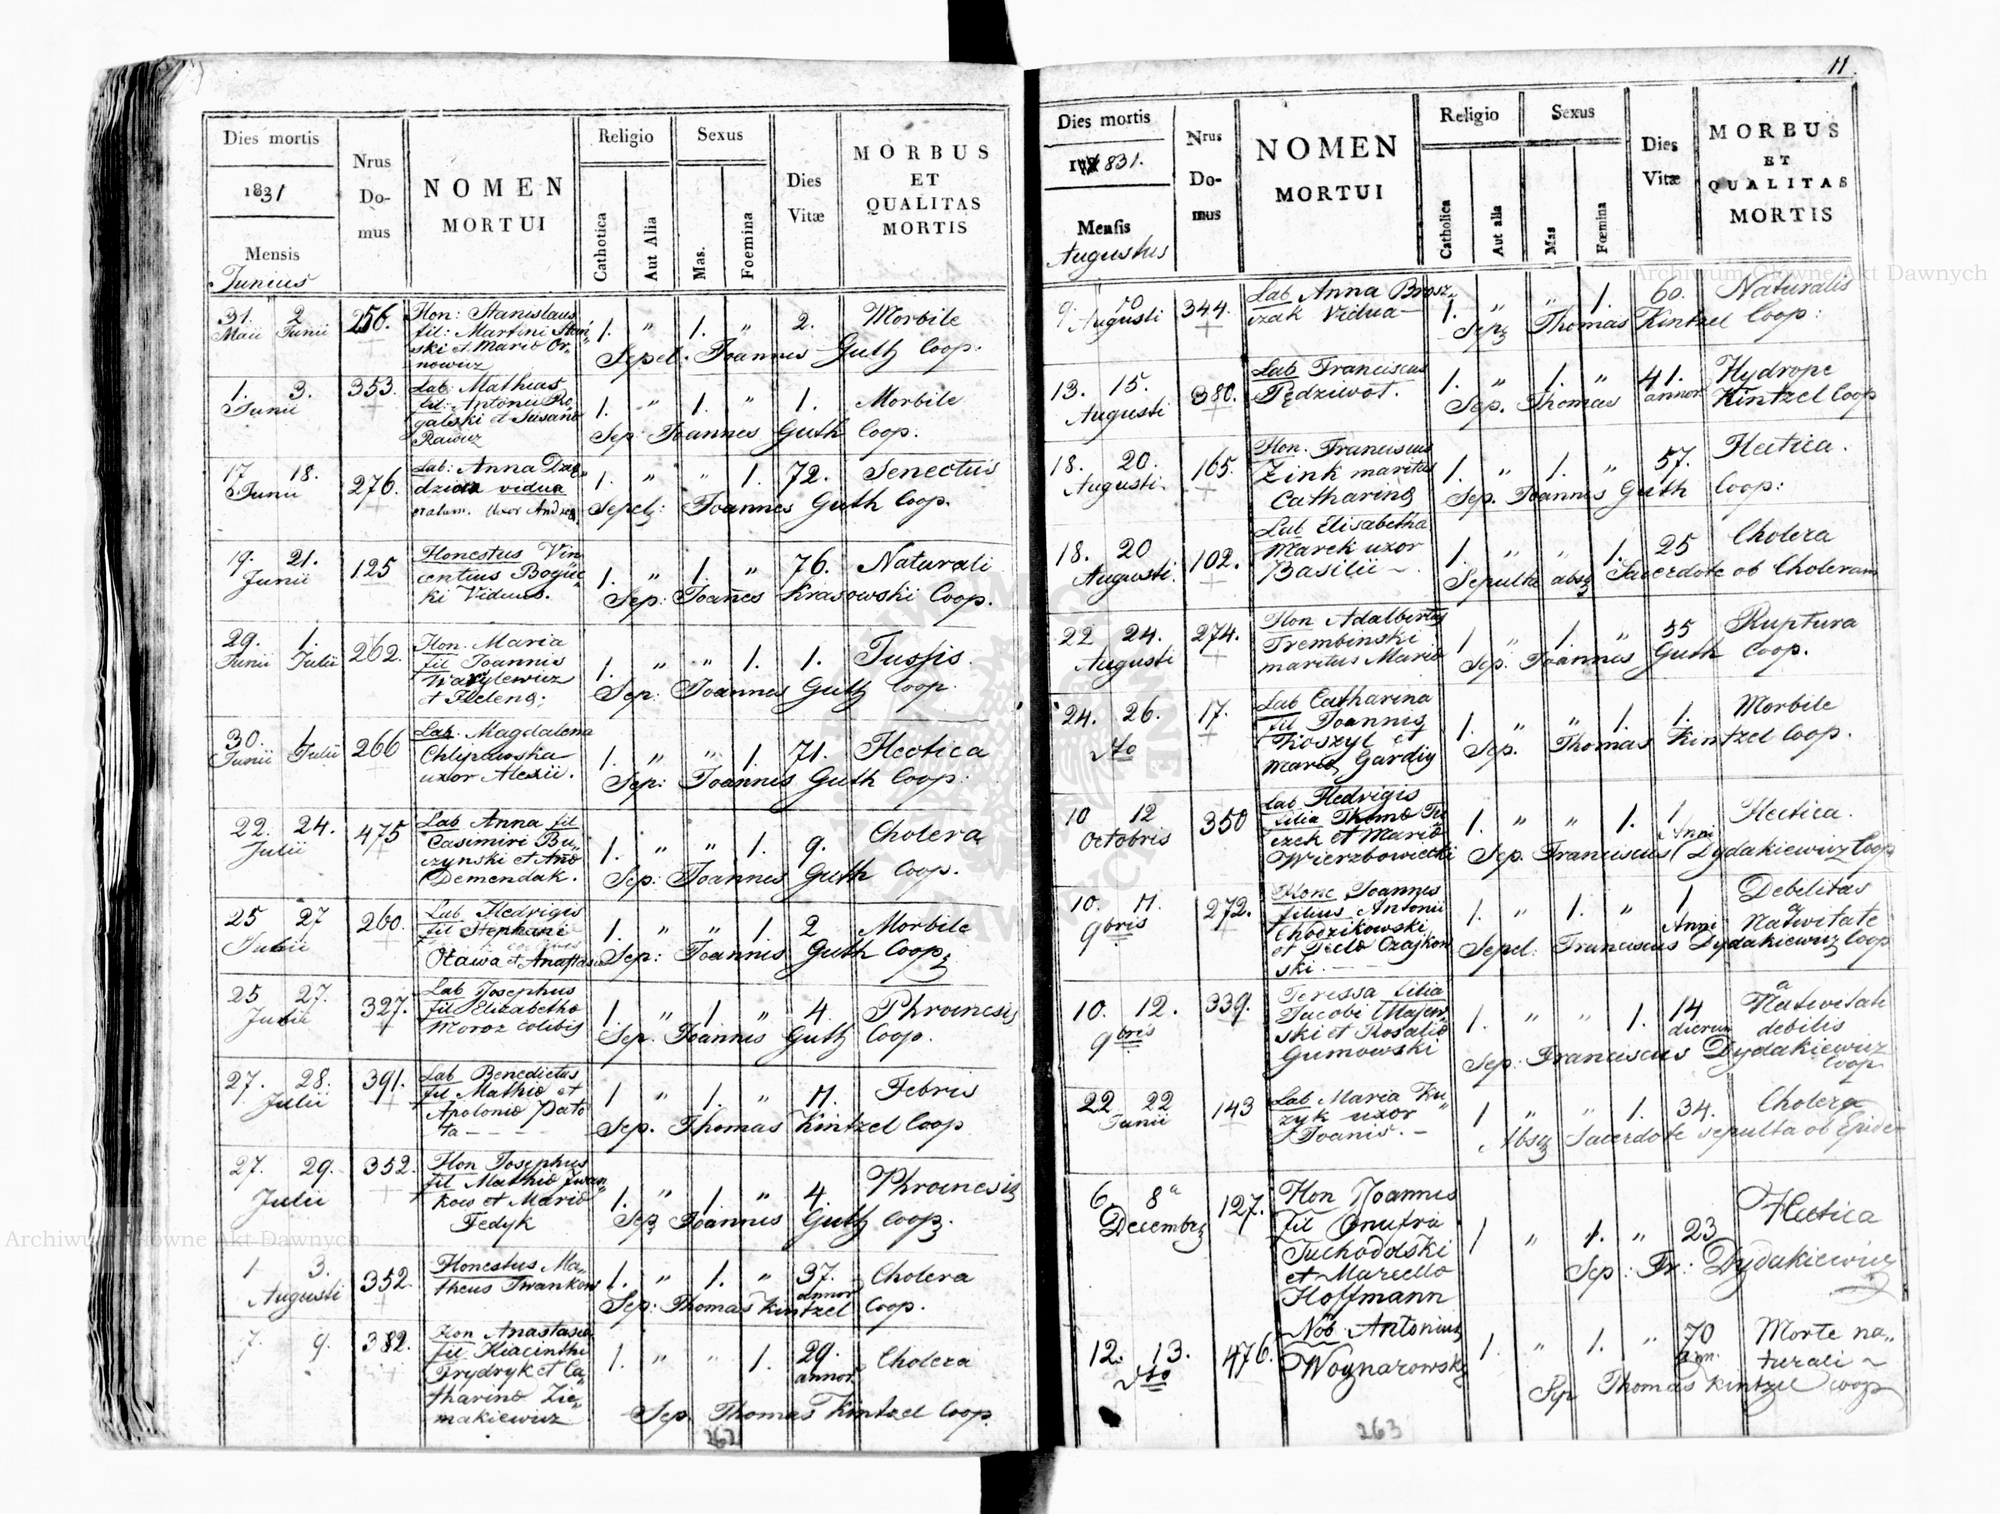 Dies mortis
1831
Mensis
Junius
Nrus
Do-
mus
NOMEN
MORTUI
Religio
Cathotica
Aut Alia
Sexus
Mas.
Foemina
Dies
Vitæ
MORBUS
ET
QUALITAS
MORTIS
31. 2 256. Hon: Stanislaus 1. " 1. " 2. Morbile
Maii Junii fil: Martini
ski et Maria Or„
nowicz
Sepel: Joannes Guth Coop.
1. 3. 353. Lab: Mathias 1. " 1. " 1. Morbile
Junii fil: Antonii Ro
galski et Susanna
Rawicz
Sep: Joannes Guth Coop.
17 18. 276. Lab: Anna 1. " " 1. 72. Senectus
Junii vidua
Uxor Andrea
Sepelz: Joannes Guth Coop.
19. 21. 125 Honestus Vin 1. " 1. " 76. Naturali
Junii centius Boguc
ki Viduus.
Sep: Joanes Krasowski Coop.
29. 1. 262. Hon. Maria 1. " " 1. 1. Tussis.
Junii Julii fil Joannis
et Helena;
Sep: Joannes Guth Coop.
30. 1. 266 Lab. Magdalena 1. " " 1. 71. Hectica
Junii Julii Chlipawska
uxor Alexii.
Sep: Joannes Guth Coop:
22. 24. 475 Lab Anna fil 1. " " 1. 9. Cholera
Julii Casimiri Bu„
czynski et Anna
Demendak.
Sep: Joannes Guth Coop.
25 27 260. Lab Hedvigis 1. " " 1. 2 Morbile
Julii fil Stephani
Olawa et Anastasia
Sep: Joannes Guth Coopz
25 27. 327. Lab Josephus 1. " 1. " 4. Phroenesis
Julii fil Elizabetha
Moroz Colibis
Sep. Joannis Guth Coop.
27. 28. 391. Lab Benedictus 1 " 1. " 11. Febris
Julii fil Mathia et
Apolonia Pata
ta
Sep. Thomas Kintzel Coop
27. 29. 352. Hon Josephus 1. " 1. " 4. Phroenesis
Julii fil Mathia Iwan
kow et Maria
Fedyk
Sep Joannis Guth Coopz.
1 3. 352 Honestus Ma„ 1. " 1. " 37. Cholera
Augusti theus Iwankow annor
Sep: Thomas Kintzel Coop.
7. 9. 382. Hon Anastasia 1. " " 1. 29. Cholera
fil Hiacinthi annor
Frydryk et Ca
tharina Zie„
makiewicz
Sep. Thomas Kintzel Coop.
262
11
Dies mortis
1831.
Mensis
Augustus
Nrus
Do-
mus
NOMEN
MORTUI
Religio
Catholica
Aut alia
Sexus
Mas
Fœmina
Dies
Vitæ
MORBUS
ET
QUALITAS
MORTIS
9. 10 344. Lab Anna Brosz„ 1. " " 1. 60. Naturalis
Augusti czak Vidua
Sepz Thomas Kintzel Coop:
13. 15. 380. Lab Franciscus 1. " 1. " 41. Hydrope
Augusti Pędziwot. annor
Sep. Thomas Kintzel Coop
18. 20. 165. Hon. Franciscus 1. " 1. " 57. Hectica.
Augusti. Zink maritus
Catharina
Sep. Joannes Guth Coop:
18. 20 102. Lab Elisabetha 1. " " 1. 25 Cholera
Augusti. Marek uxor
Basilii
Sepulta absq Sacerdote ob Choleram
22 24. 274. Hon Adalbertus 1 " 1. " 55 Ruptura
Augusti Trembinski
maritus Maria
Sep. Joannes Guth Coop.
24. 26. 17. Lab Catharina 1. " " 1. 1. Morbile
dto fil Joannis
Koszyl et
Maria Gardiy
Sep. Thomas Kintzel Coop.
10 12 350 Lab Hedvigis 1. " " 1. 1 Hectica.
Octobris filia Thoma Anni
czek et Maria
Wierzbowiecki
Sep. Franciscus Dydakiewicz Coop
10. 11. 272. Hone Joannes 1. " 1. " 1 Debilitas
9bris filius Antonii Anni a Nativitate
Chodzikowski
et Tecla Czajkow
ski.
Sepel: Franciscus Dydakiewicz Coop
10. 12. 339. Teressa filia 1. " " 1. 14 a Nativitate
9bris Jacobi dierum debilis
ski et Rosalia
Gumowski
Sep: Franciscus Dydakiewicz
Coop
22 22 143 Lab Maria Ku„ 1 " " 1. 34. Cholera
Junii zyk uxor
Joanis.
Absq Sacerdote sepulta ob Epide
6 8a 127. Hon Joannes 1 " 1. " 23 Hectica
Decembr fil Onufria
Suchodolski
et Marcella
Hoffmann
Sep: Fr: Dydakiewicz
12. 13. 476. Nob Antonius 1. " 1. " 70 Morte na„
dto Woynarowski ann. turali
Sep Thomas Kintzel Coop
263
Archiwum Główne Akt Dawnych
Archiwum Główne Akt Dawnych